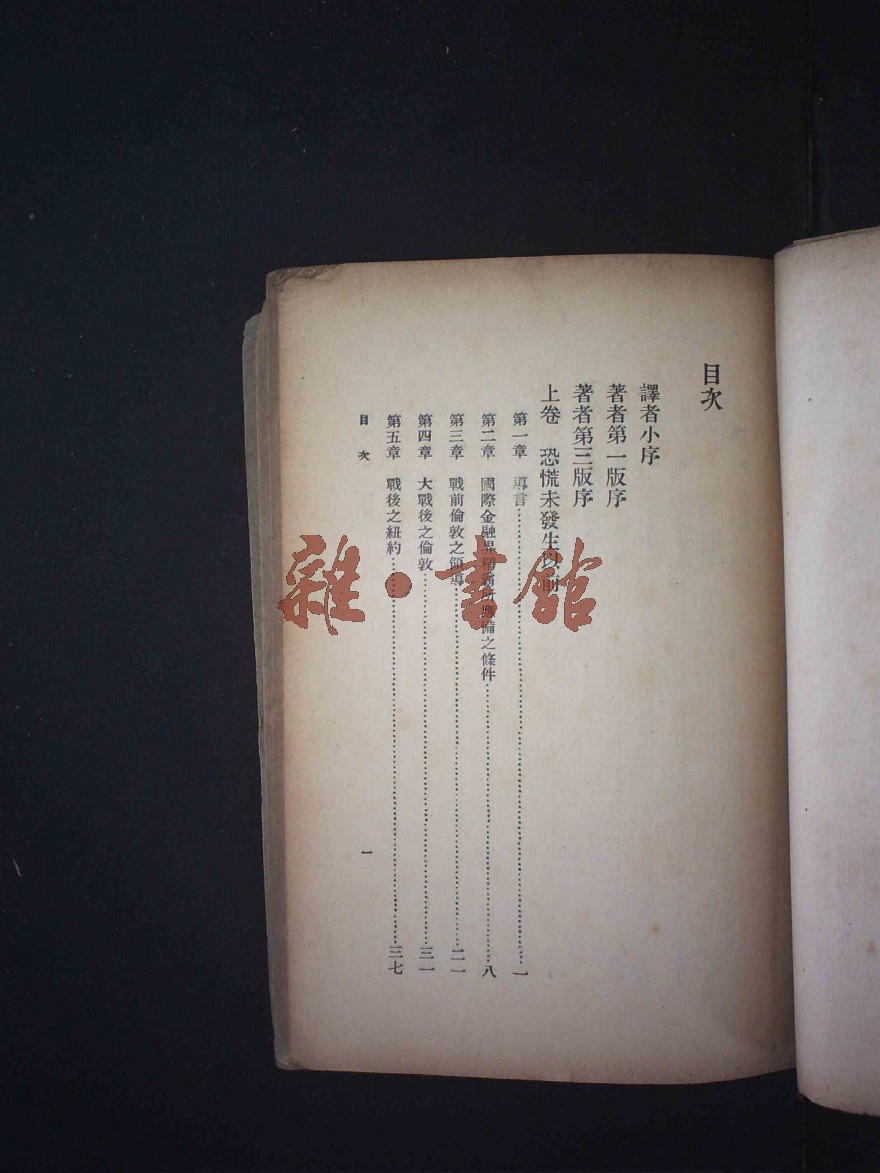 目次
譯者小序
著者第一版序
著者第三版序
上卷 恐慌未發生以前
第一章 導言……一
第二章 國際金融界稱霸所應備之條件……八
第三章 戰前倫敦之領導……二一
第四章 大戰後之倫敦……三一
第五章 戰後之紐約……三七
目次 一
雜·書館